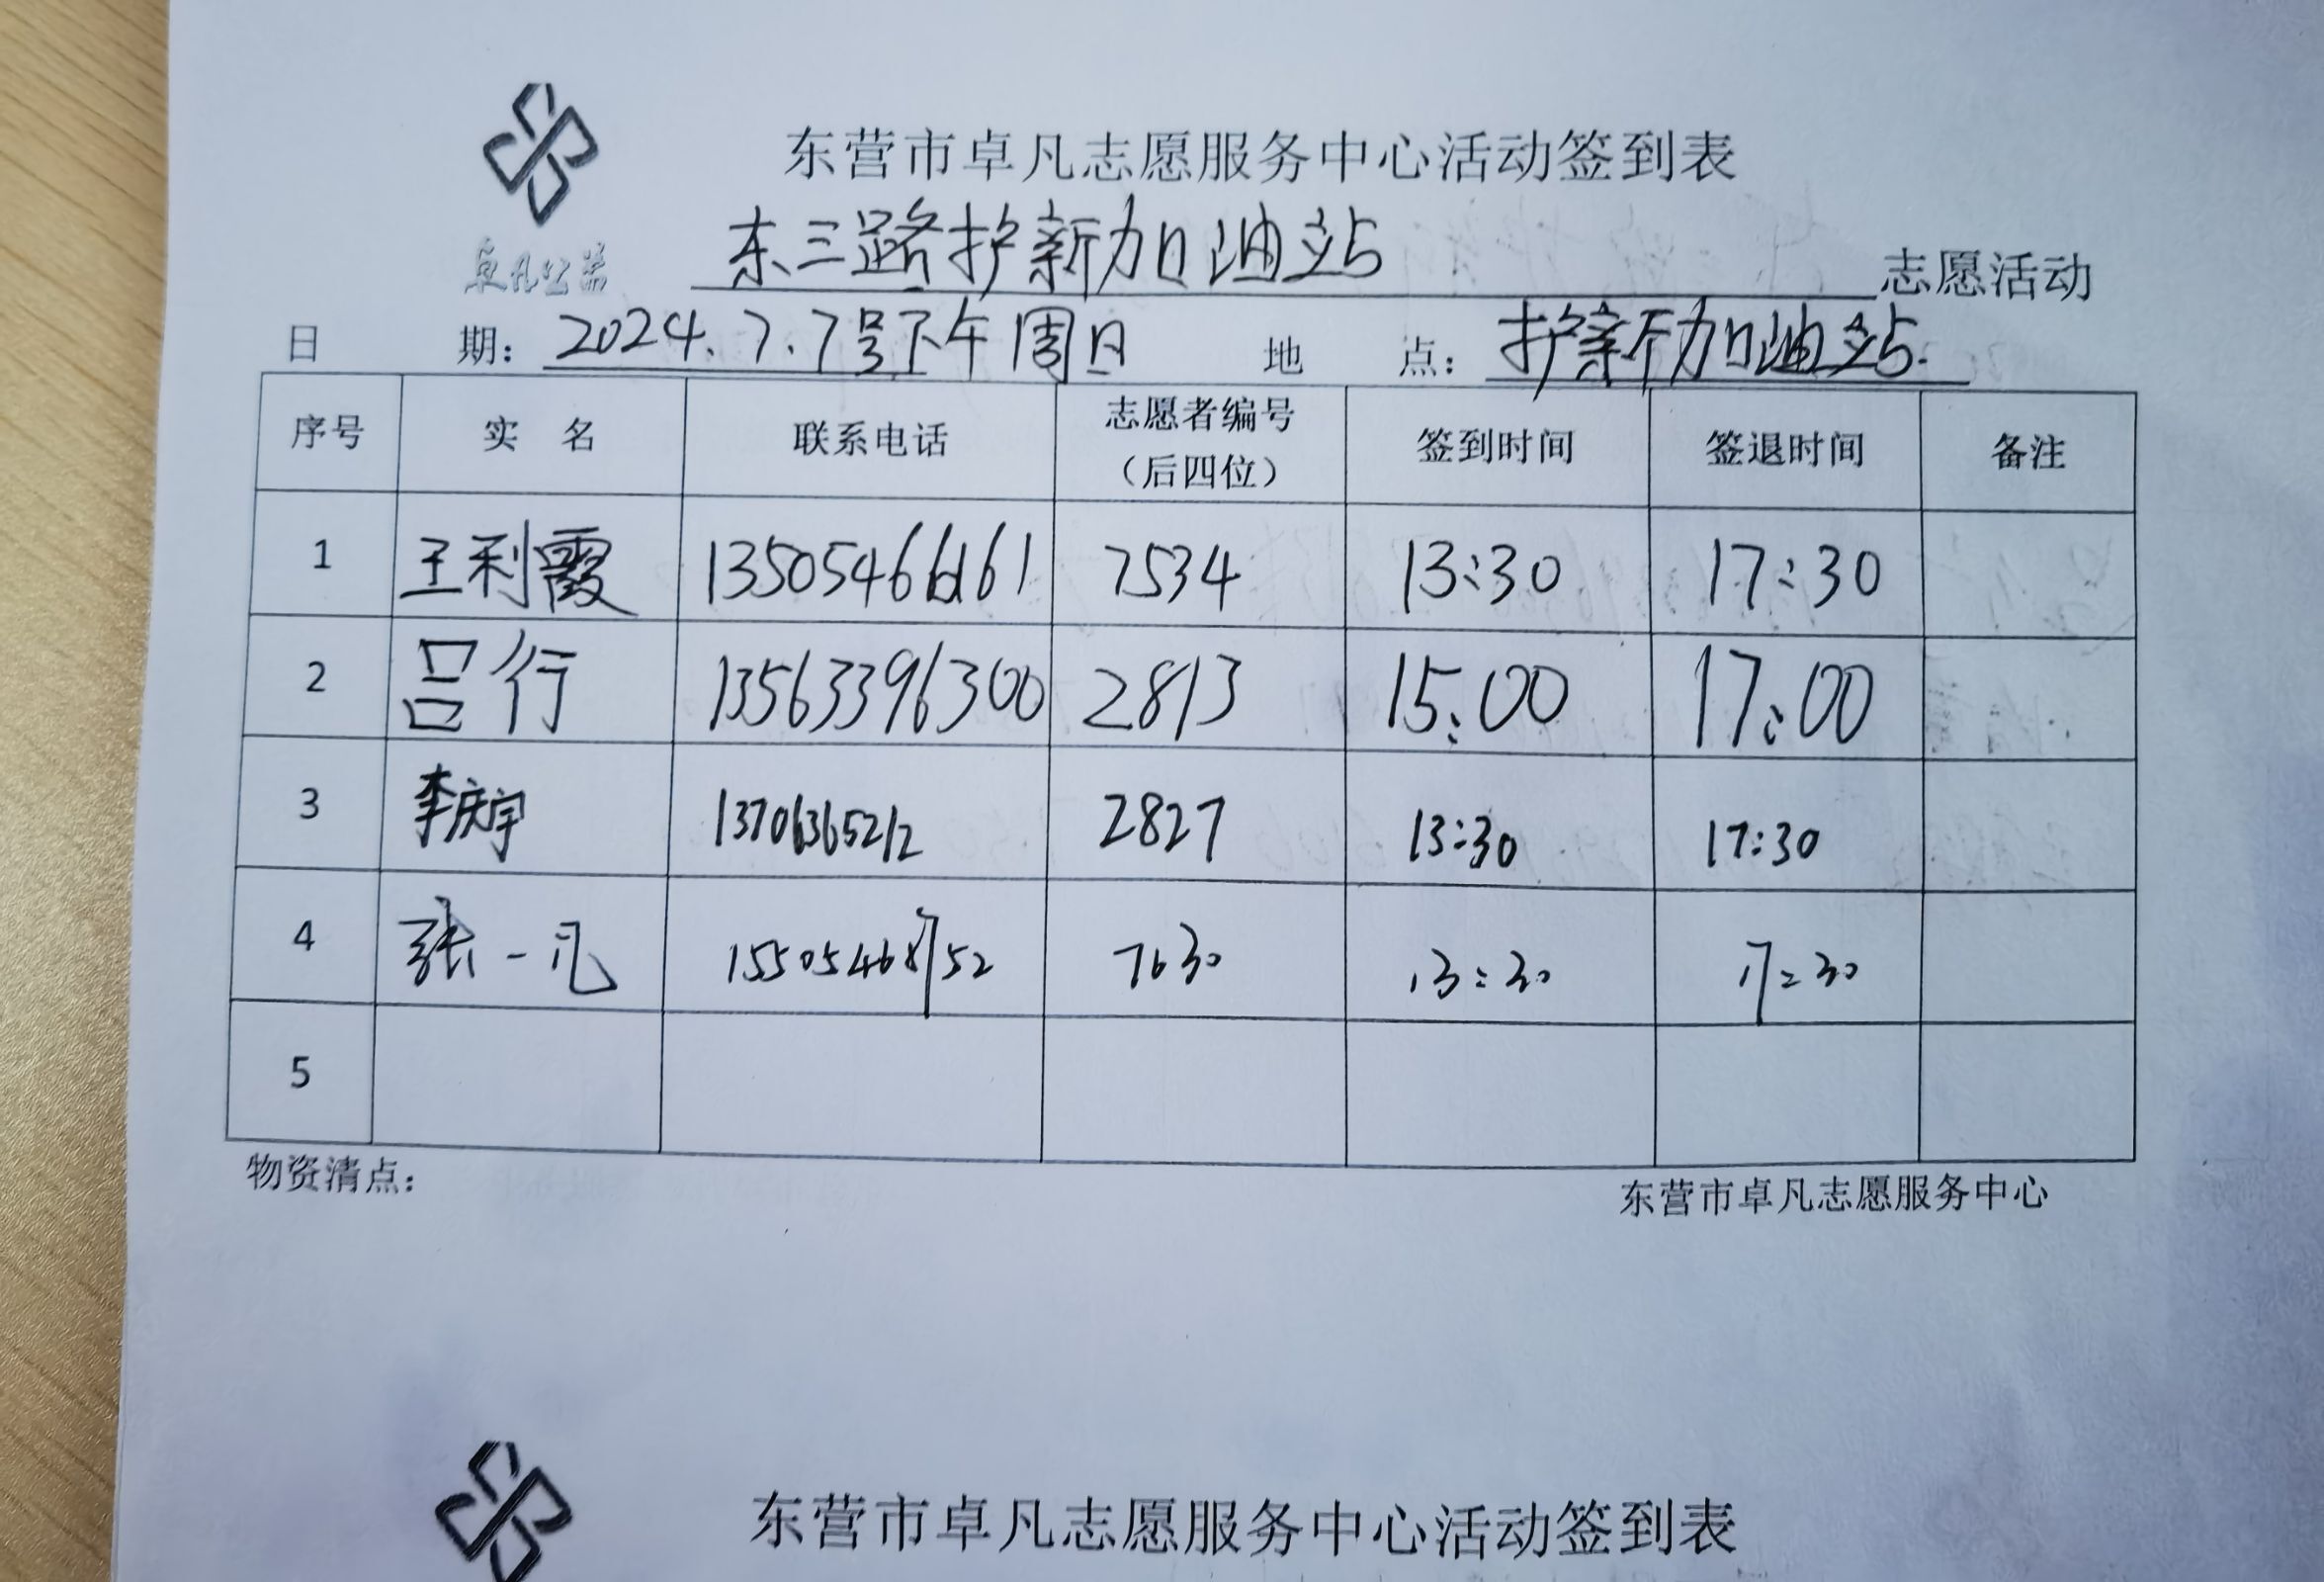 东营市卓凡志愿服务中心活动签到表
卓凡公益 东三路护新加油站 志愿活动
日 期：2024.7.7号下午周日 地 点：护新加油站.
序号 实 名 联系电话 志愿者编号（后四位） 签到时间 签退时间 备注
1 王利霞 7534 13:30 17:30
2 吕行 13563396300 2813 15:00 17:00
3 李庆宇 13706365212 2827 13:30 17:30
4 张一凡 15505468752 7630 13:30 17:30
5
物资清点： 东营市卓凡志愿服务中心
东营市卓凡志愿服务中心活动签到表